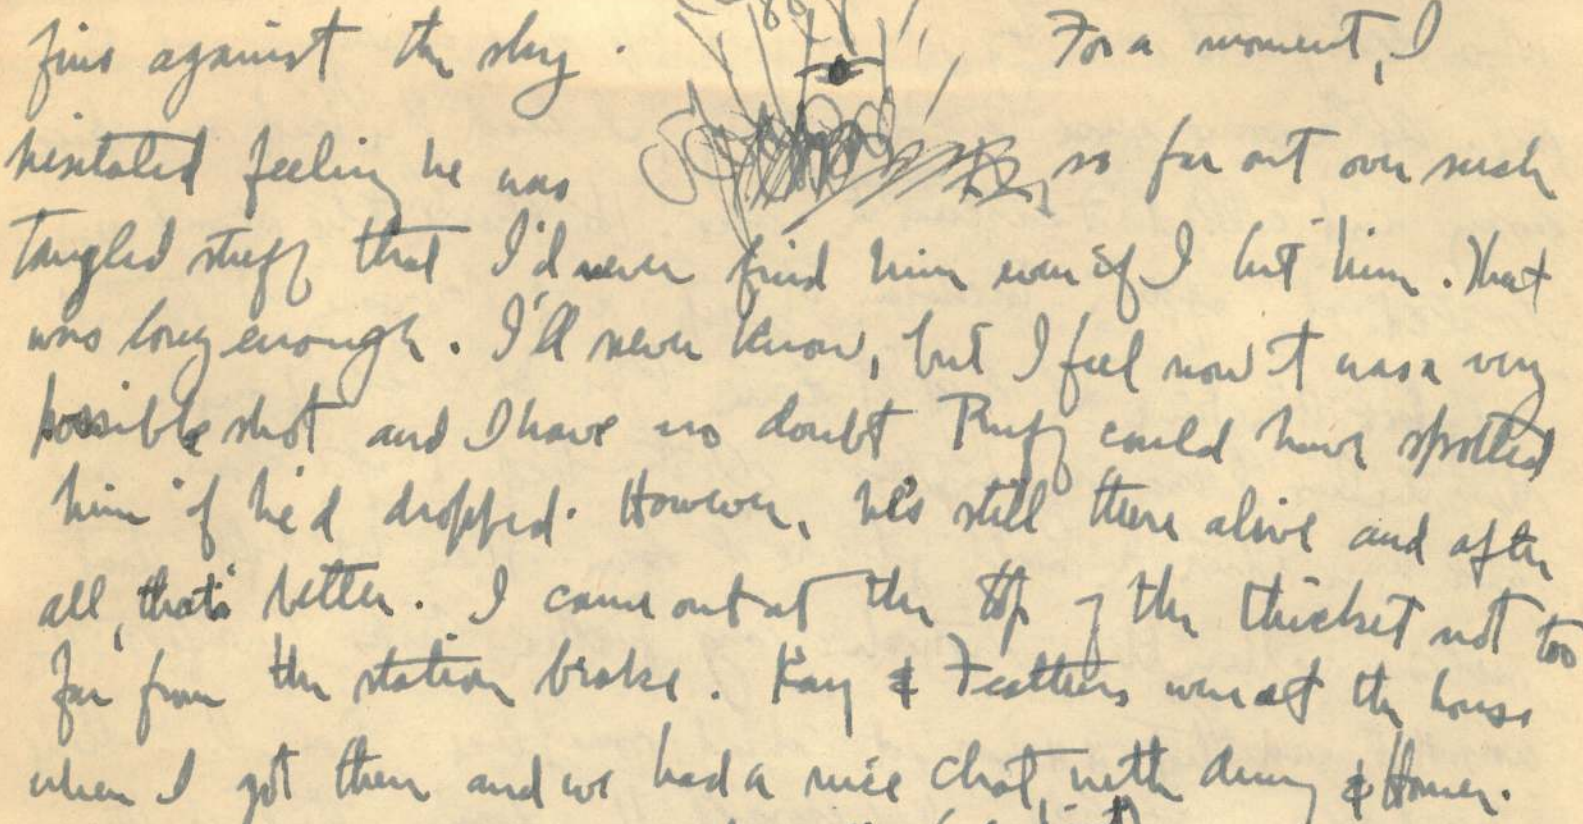 fine against the sky. For a moment, I
hesitated feeling he was so far out over such
tangled stuff that I'd never find him even if I hit him. That
was long enough. I'll never know, but I feel now it was a very
possible shot and I have no doubt could have spotted
him if he'd dropped. However, he's still there alive and after
all, that's better. I came out at the top of the thicket not too
far from the station brake. Kay & Feathers were at the house
when I got there and we had a nice chat, with & Homer.